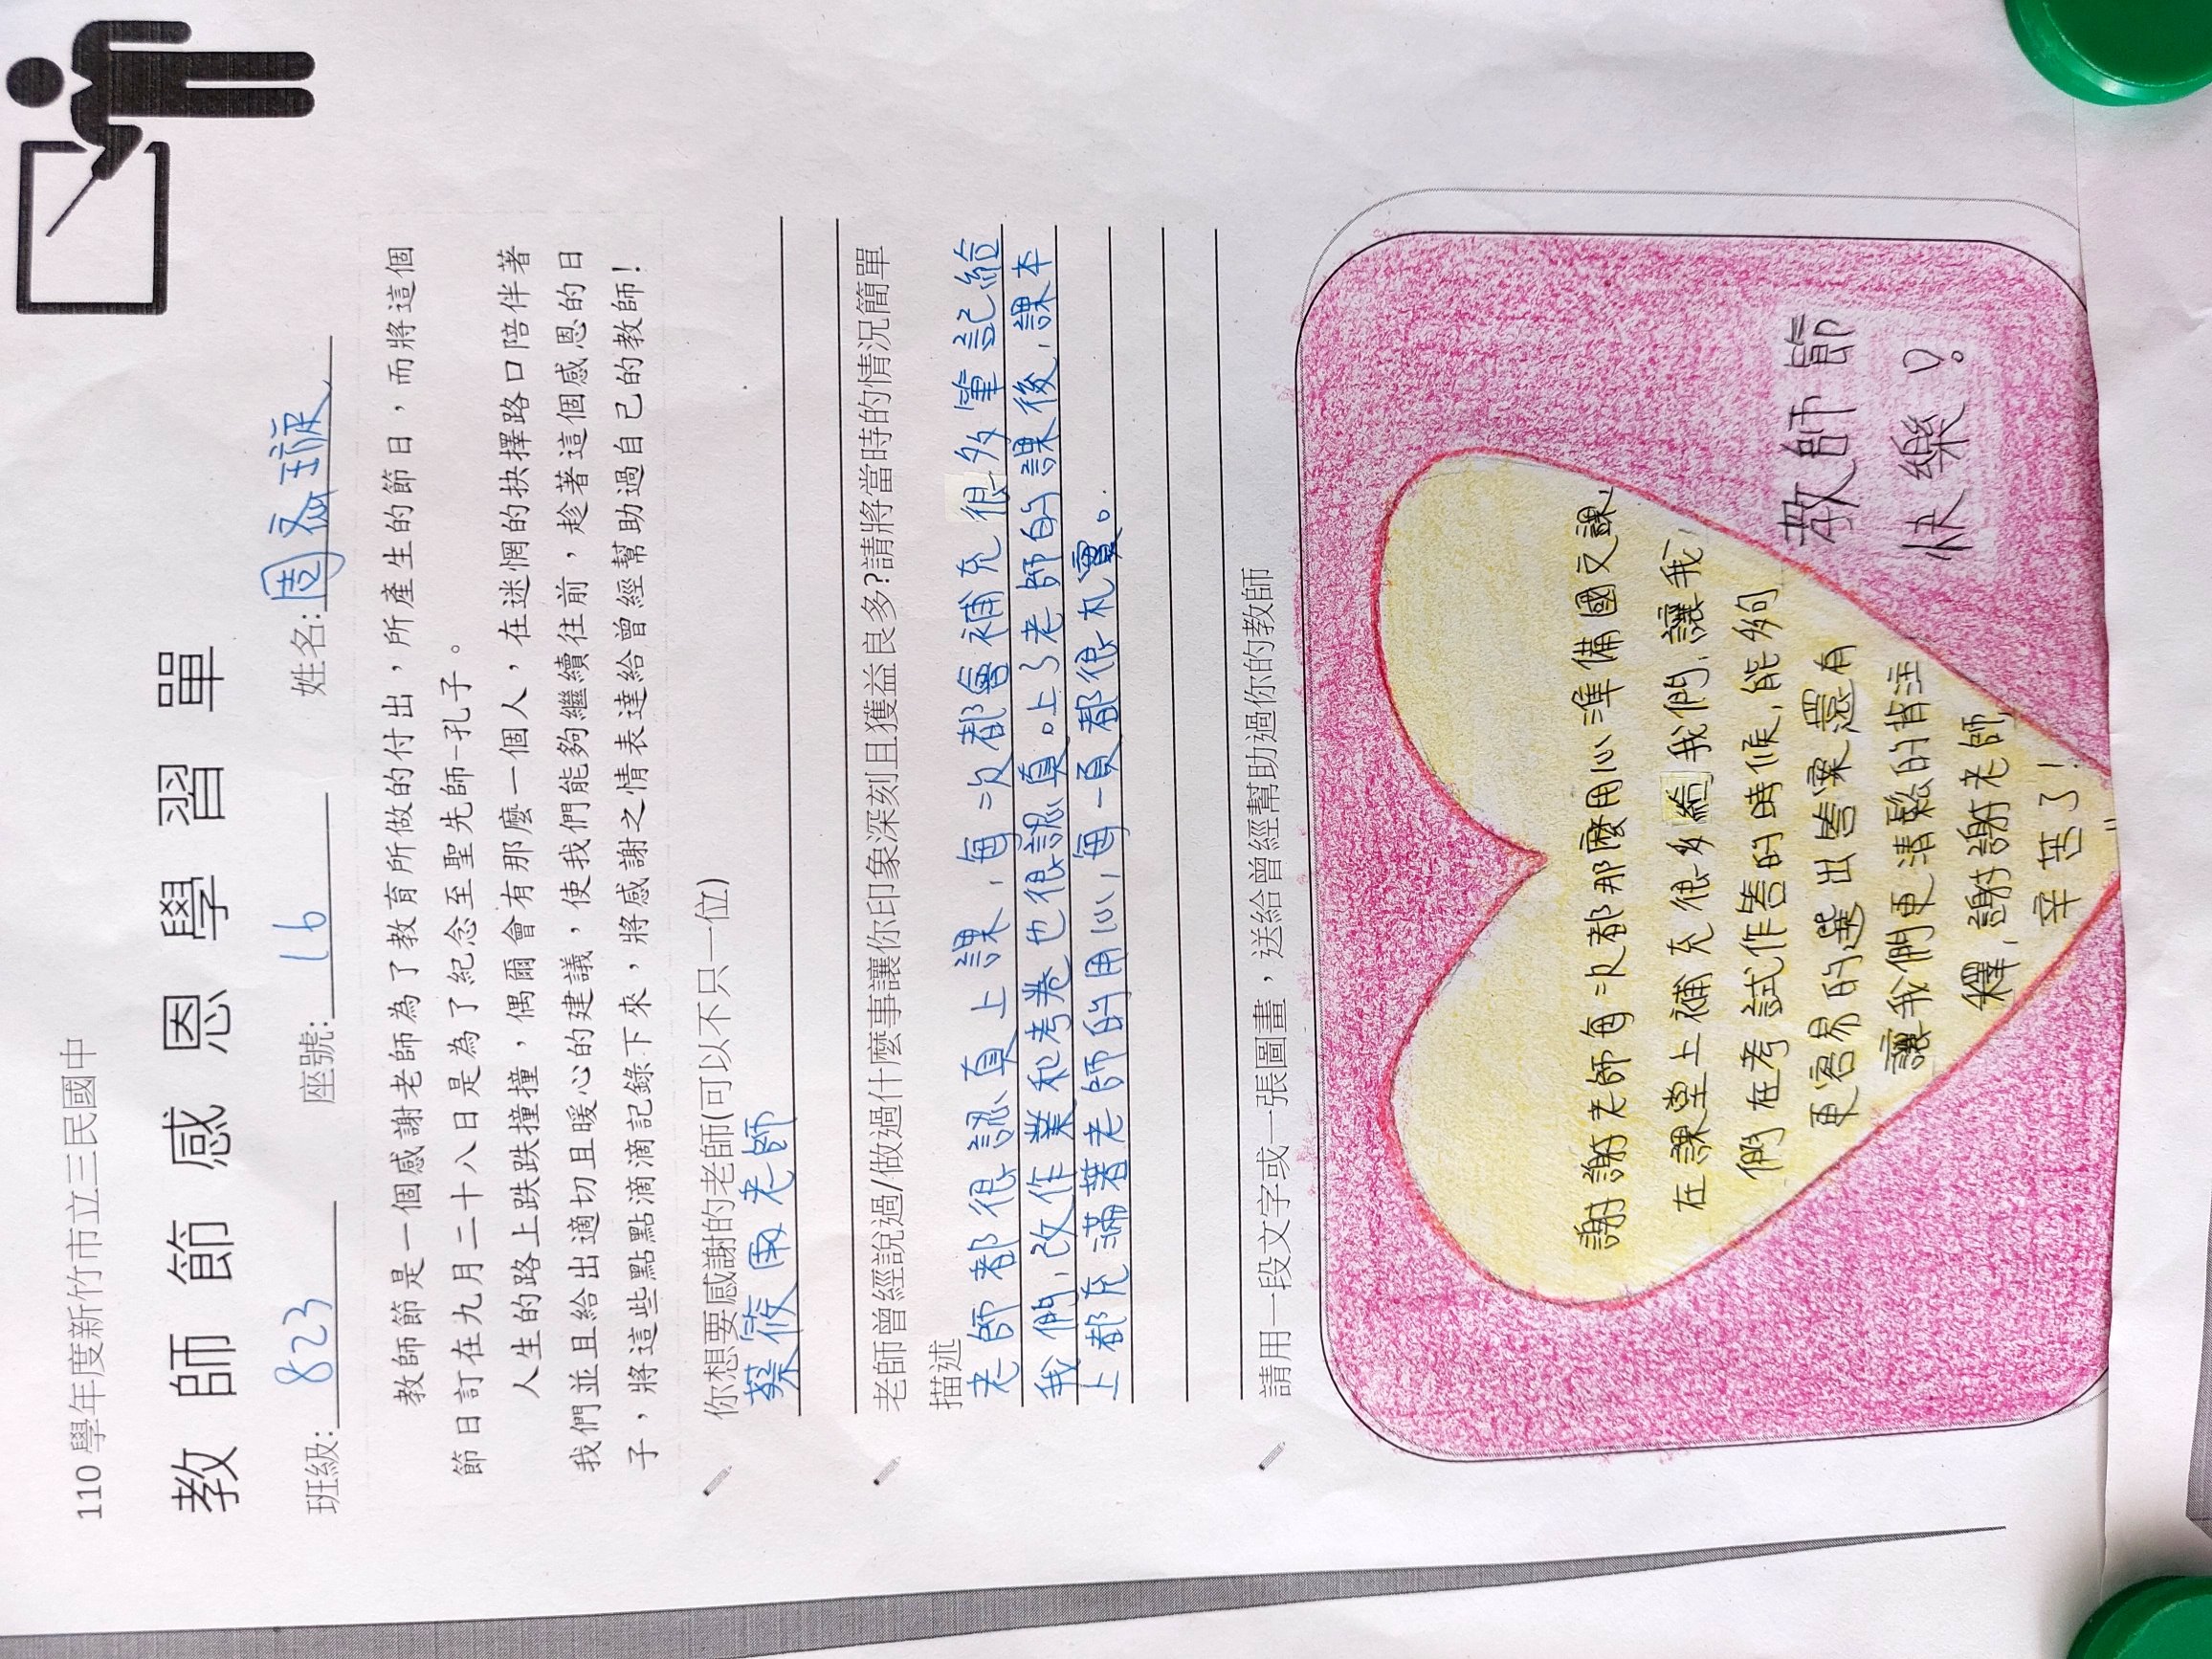 110 學年度新竹市立三民國中
教師節感恩學習單
班級: 823 座號: 16 姓名: 周
教師節是一個感謝老師為了教育所做的付出，所產生的節日，而將這個
節日訂在九月二十八日是為了紀念至聖先師─孔子。
人生的路上跌跌撞撞，偶爾會有那麼一個人，在迷惘的抉擇路口陪伴著
我們並且給出適切且暖心的建議，使我們能夠繼續往前，趁著這個感恩的日
子，將這些點點滴滴記錄下來，將感謝之情表達給曾經幫助過自己的教師!
你想要感謝的老師(可以不只一位)
蔡筱雨老師
老師曾經說過/做過什麼事讓你印象深刻且獲益良多?請將當時的情況簡單
描述
老師都很認真上課，每次都會補充很多筆記給
我們，改作業和考卷也很認真。上了老師的課後，課本
上都充滿著老師的用心，每一頁都很札實。
請用一段文字或一張圖畫，送給曾經幫助過你的教師
謝謝老師每次都那麼用心準備國文課，
在課堂上補充很多給我們，讓我
們在考試作答的時候，能夠
更容易的選出答案還有
讓我們更清鬆的背注
釋，謝謝老師，
辛苦了!
教師節
快樂!